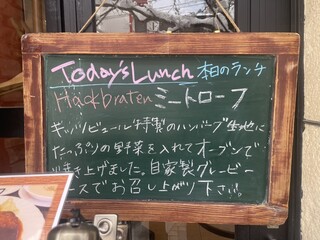 Today's Lunch 本日のランチ
Hackbraten ミートローフ
キッツビュール特製のハンバーグ生地に
たっぷりの野菜を入れてオーブンで
焼き上げました。自家製グレービー
ソースでお召し上がり下さい。